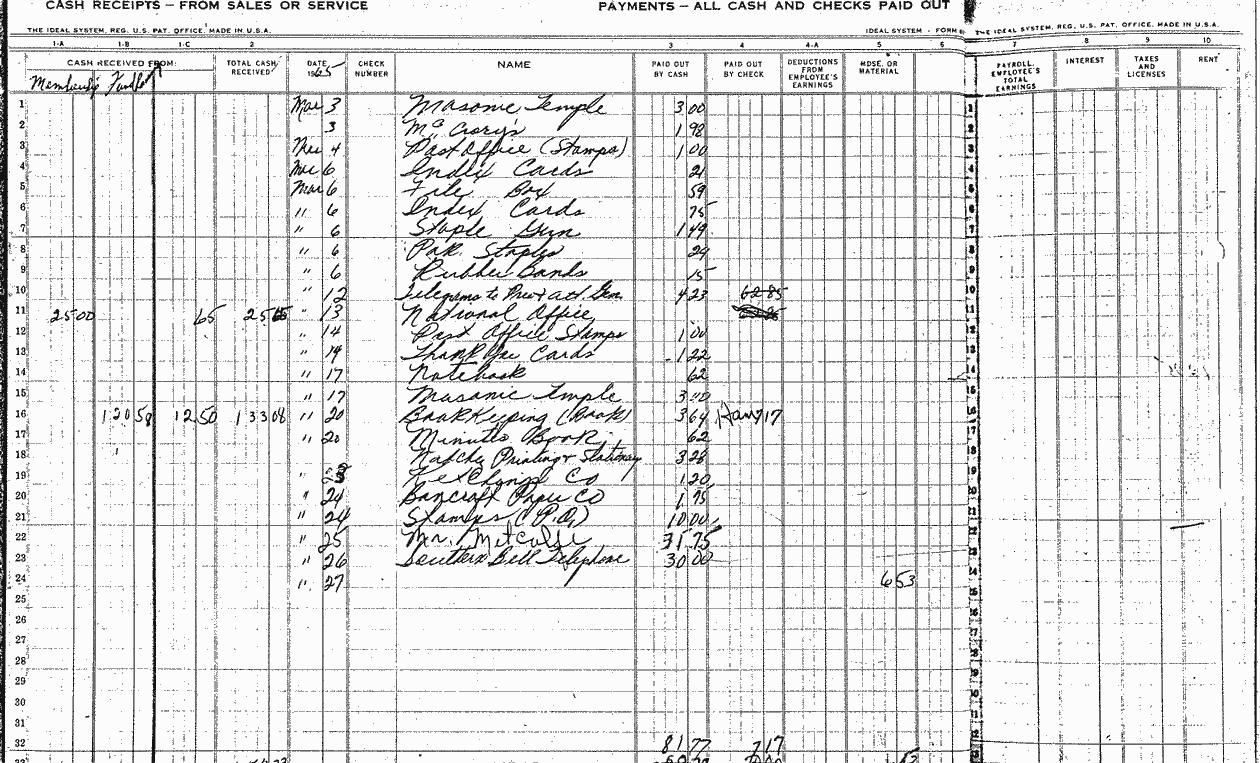 CASH RECEIPTS – FROM SALES OR SERVICE PAYMENTS – ALL CASH AND CHECKS PAID OUT
THE IDEAL SYSTEM, REG. U.S. PAT. OFFICE. MADE IN U.S.A. IDEAL SYSTEM - FORM THE IDEAL SYSTEM, REG. U.S. PAT. OFFICE. MADE IN U.S.A.
1-A 1-B 1-C 2 3 4 4-A 5 6 7 8 9 10
CASH RECEIVED FROM: TOTAL CASH RECEIVED DATE 1965 CHECK NUMBER NAME PAID OUT BY CASH PAID OUT BY CHECK DEDUCTIONS FROM EMPLOYEE'S EARNINGS MDSE. OR MATERIAL PAYROLL, EMPLOYEE'S TOTAL EARNINGS INTEREST TAXES AND LICENSES RENT
Membership
1 Mar 3 Masonic Temple 3 00
2 3 McCrory's 1 98
3 Mar 4 Post Office (Stamps) 1 00
4 Mar 6 Index Cards 21
5 Mar 6 File Box 59
6 " 6 Index Cards 75
7 " 6 Staple Gun 1 49
8 " 6 Pak. Staples 24
9 " 6 Rubber Bands 15
10 " 12 Telegrams to Pres + Gen. 4 23 62 85
11 25 00 65 25 65 " 13 National Office
12 " 14 Post Office Stamps 1 00
13 " 14 Thank You Cards 1 22
14 " 17 Notebook 62
15 " 17 Masonic Temple 3 00
16 120 58 12 50 133 08 " 20 BookKeeping (Book) 3 64 17
17 " 20 Minutes Book 62
18 Printing + Stationery 3 28
19 " Co 1 20
20 " 24 Bancroft Paper Co 1 75
21 " 24 Stamps (P.O.) 10 00
22 " 25 Mr. Metcalfe 31 75
23 " 26 Southern Bell Telephone 30 00
24 " 27 6 53
25
26
27
28
29
30
31
32 81 77 7 17